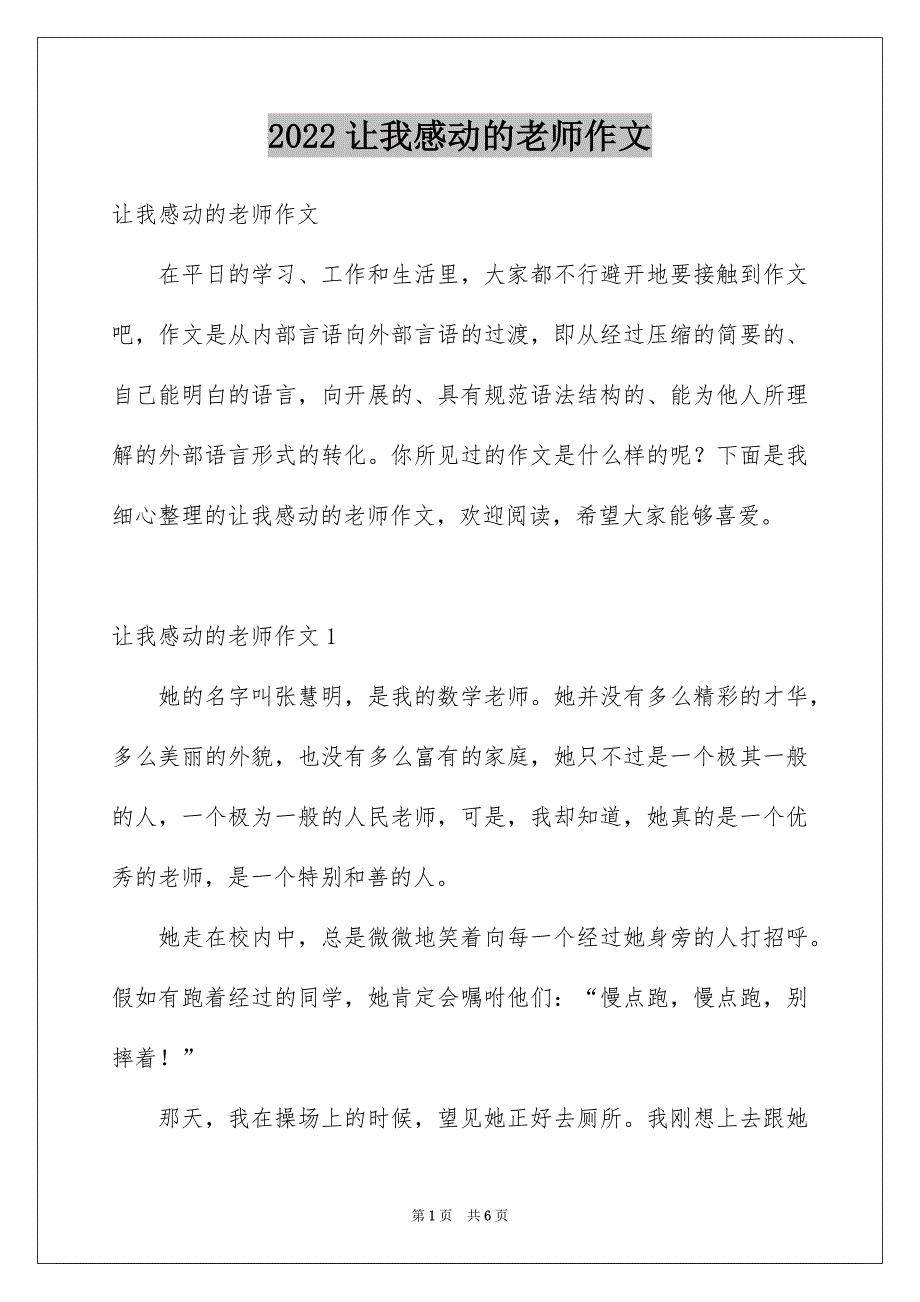 2022让我感动的老师作文
让我感动的老师作文
在平日的学习、工作和生活里，大家都不行避开地要接触到作文
吧，作文是从内部言语向外部言语的过渡，即从经过压缩的简要的、
自己能明白的语言，向开展的、具有规范语法结构的、能为他人所理
解的外部语言形式的转化。你所见过的作文是什么样的呢？下面是我
细心整理的让我感动的老师作文，欢迎阅读，希望大家能够喜爱。
让我感动的老师作文1
她的名字叫张慧明，是我的数学老师。她并没有多么精彩的才华，
多么美丽的外貌，也没有多么富有的家庭，她只不过是一个极其一般
的人，一个极为一般的人民老师，可是，我却知道，她真的是一个优
秀的老师，是一个特别和善的人。
她走在校内中，总是微微地笑着向每一个经过她身旁的人打招呼。
假如有跑着经过的同学，她肯定会嘱咐他们：“慢点跑，慢点跑，别
摔着！”
那天，我在操场上的时候，望见她正好去厕所。我刚想上去跟她
第1页 共6页